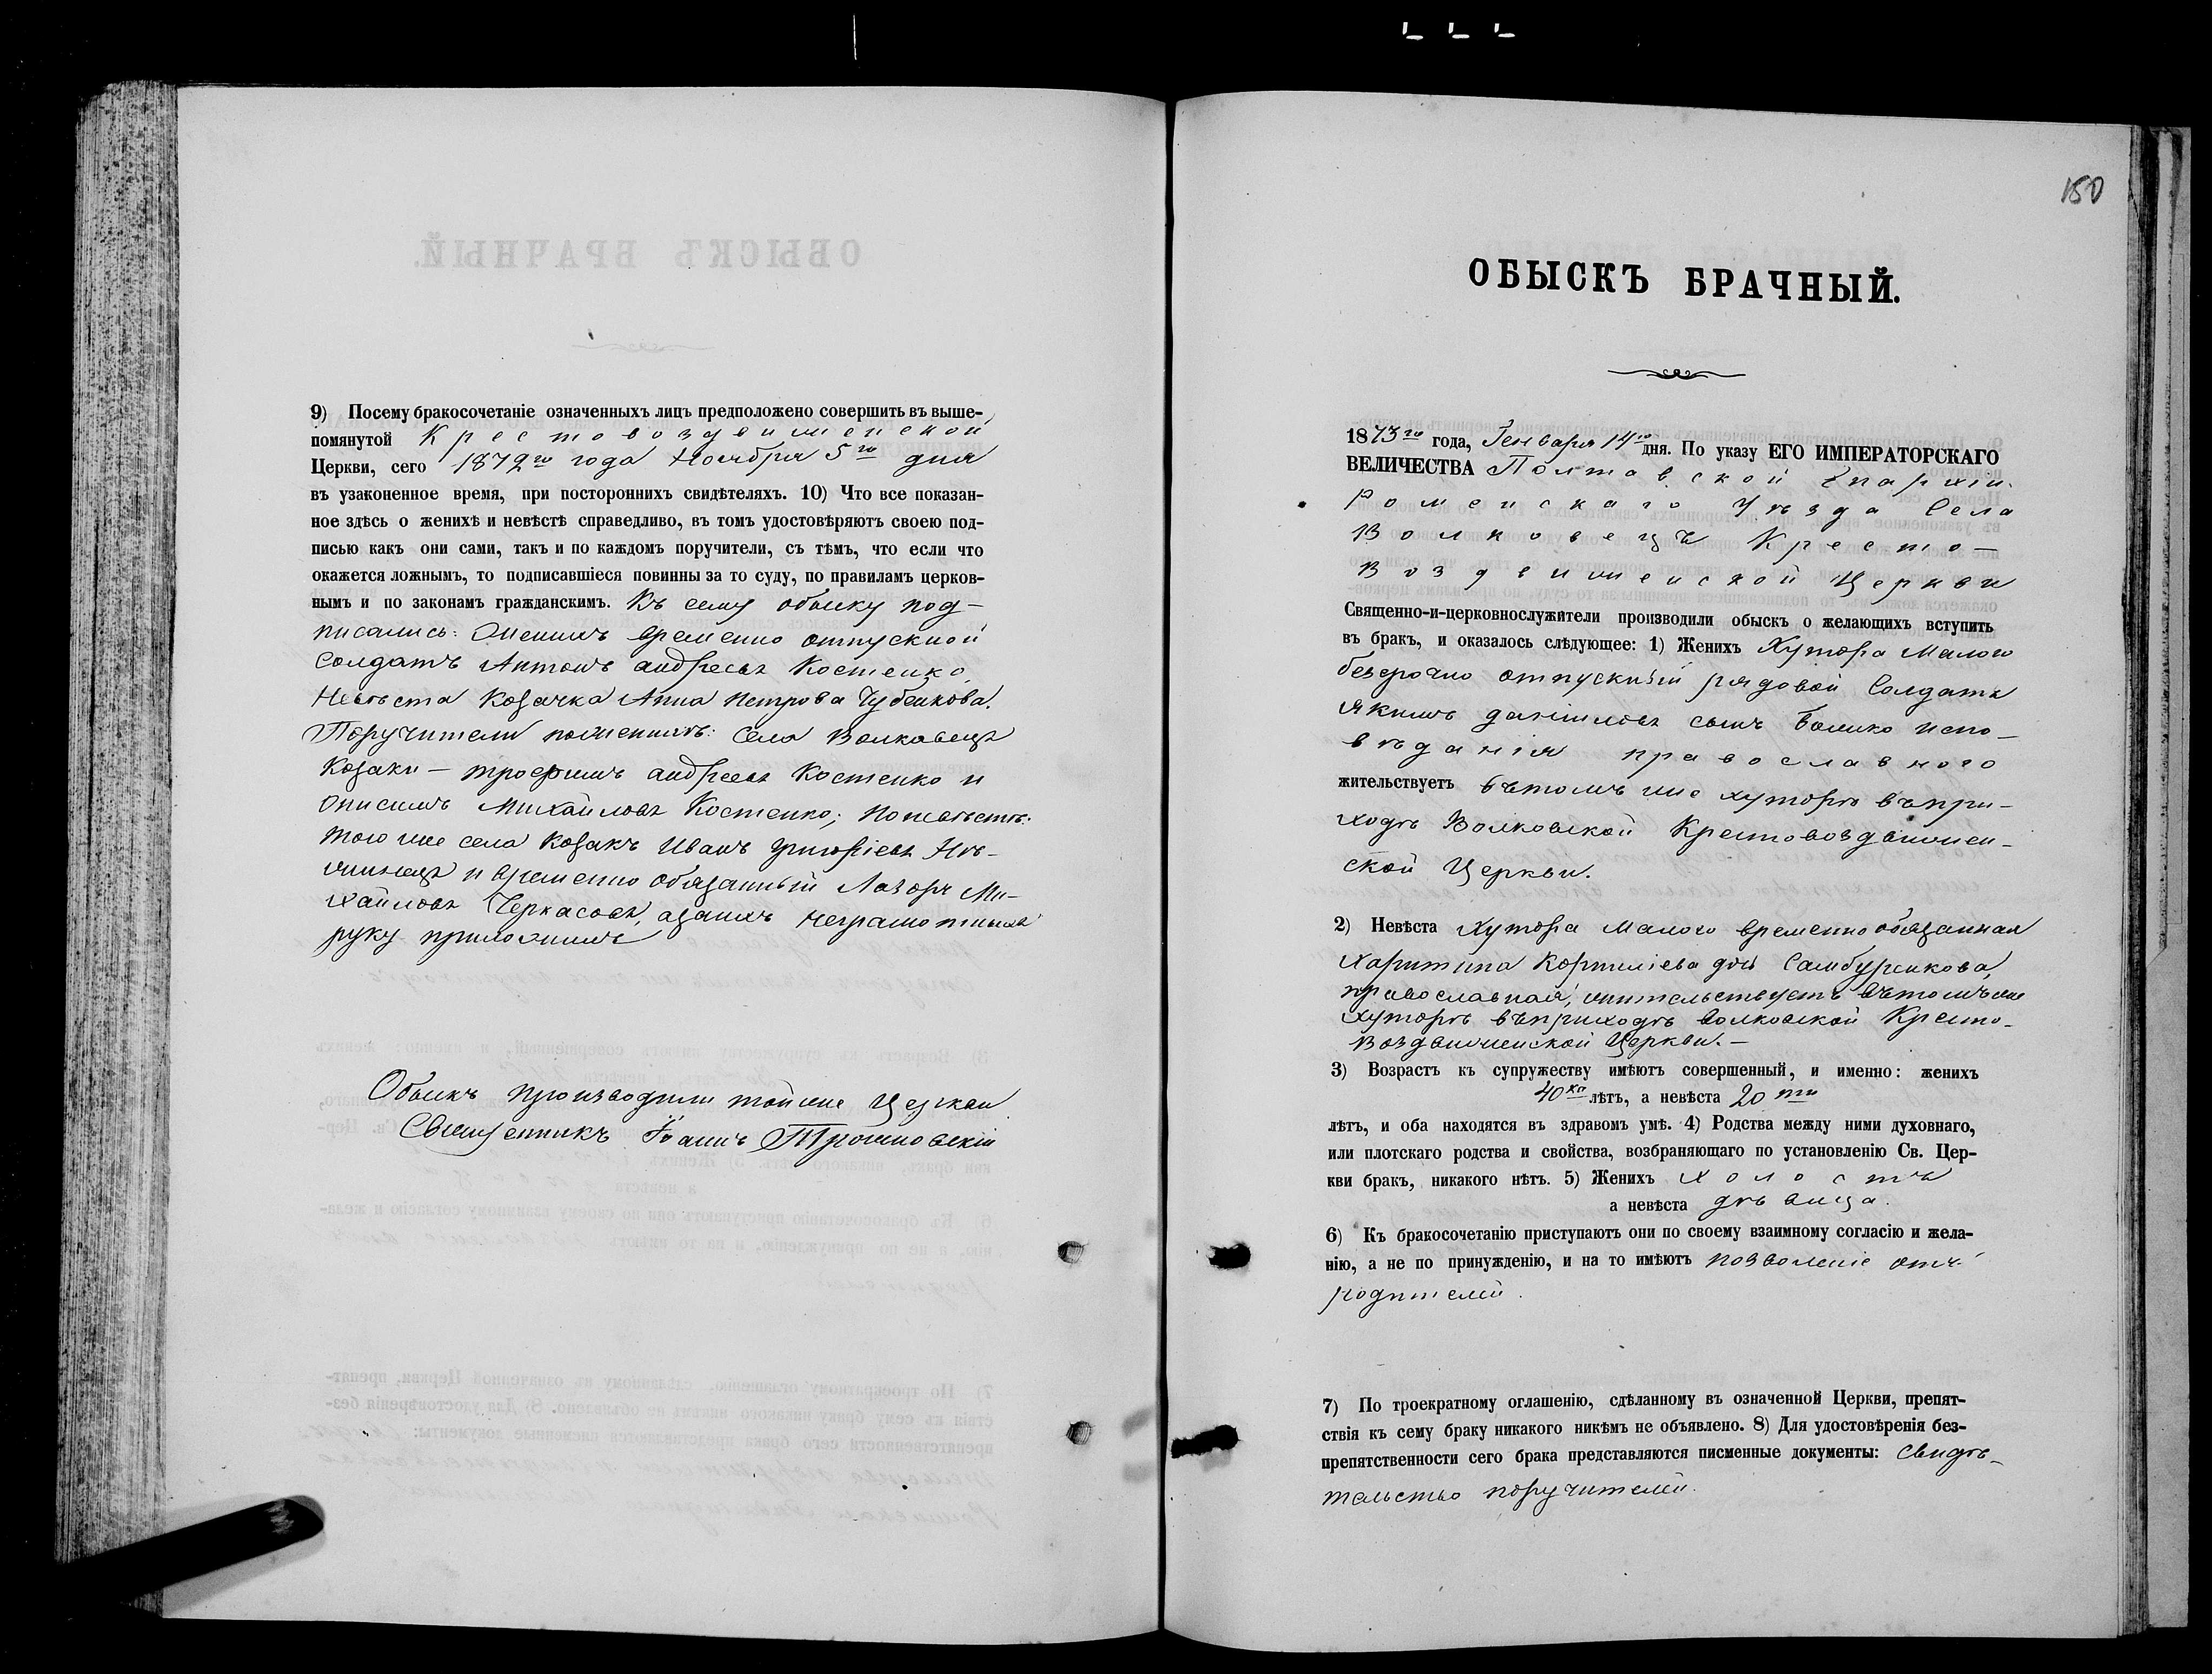 9) Посему бракосочетаніе означенныхъ лицъ предположено совершить въ выше-
помянутой Крестовоздвиженской
Церкви, сего 1872го года Ноября 5го дня
въ узаконенное время, при постороннихъ свидѣтеляхъ. 10) Что все показан-
ное здѣсь о женихѣ и невѣстѣ справедливо, въ томъ удостовѣряютъ своею под-
писью какъ они сами, такъ и по каждомъ поручители, съ тѣмъ, что если что
окажется ложнымъ, то подписавшіеся повинны за то суду, по правиламъ церков-
нымъ и по законамъ гражданскимъ. Къ сему обыску под-
писались: Женихъ временно отпускной
Солдатъ Антонъ Андреевъ Костенко
Невѣста Козачка Анна Петрова Чубенкова.
Поручители по женихѣ: Села Волковецъ
Козаки – Трофимъ Андреевъ Костенко и
Онисимъ Михайловъ Костенко; По невѣстѣ:
того же села Козакъ Иванъ Григоріевъ Нѣ-
жинецъ и временно обязанный Лазорь Ми-
хайловъ Черкасовъ, а за нихъ неграмотныхъ
руку приложилъ
Обыскъ производили той же Церкви
Священникъ Іоаннъ Трояновскій
150
ОБЫСКЪ БРАЧНЫЙ.
1873го года, Генваря 14го дня. По указу ЕГО ИМПЕРАТОРСКАГО
ВЕЛИЧЕСТВА Полтавской Епархіи
Роменскаго Уѣзда Села
Волковецъ Кресто-
Воздвиженской Церкви
Священно-и-церковнослужители производили обыск о желающихъ вступить
въ брак, и оказалось слѣдующее: 1) Женихъ Хутора Малого
безсрочно отпускный рядовой Солдатъ
Якимъ Даніиловъ сынъ Бошко испо-
вѣданія православного
жительствуетъ въ томъ же хуторѣ въ при-
ходѣ Волковской Крестовоздвижен-
ской Церкви.
2) Невѣста Хутора Малого временно обязанная
Харитина Корниліева дочь Самбуренкова,
православная, жительствуетъ въ томъ же
хуторѣ въ приходѣ Волковской Кресто-
Воздвиженской Церкви. –
3) Возрастъ къ супружеству имѣютъ совершенный, и именно: женихъ
40ка лѣтъ, а невѣста 20ти
лѣтъ, и оба находятся въ здравомъ умѣ. 4) Родства между ними духовнаго,
или плотскаго родства и свойства, возбраняющаго по установленію Св. Цер-
кви бракъ, никакого нѣтъ. 5) Женихъ холостъ
а невѣста дѣвица.
6) Къ бракосочетанію приступаютъ они по своему взаимному согласію и жела-
нію, а не по принужденію, и на то имѣютъ позволеніе отъ
родителей.
7) По троекратному оглашенію, сдѣланному въ означенной Церкви, препят-
ствія къ сему браку никакого никѣмъ не объявлено. 8) Для удостовѣренія без-
препятственности сего брака представляются писменные документы: Свидѣ-
тельство поручителей.